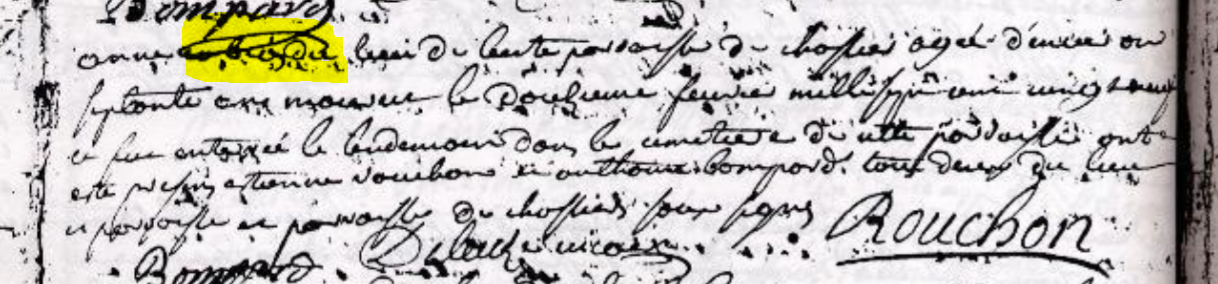 Bompard
anne du lieu de parroisse de chassiers agée d'environ
septante ans mourut le douzieme fevrier mil sept cent vingt neuf
et fut enterrée le lendemain dans le cimetiere de cette parroisse ont
esté presens estienne rouchon et anthoine bompard tous deux du lieu
et parroisse de chassiers sous signes Rouchon
Bompard